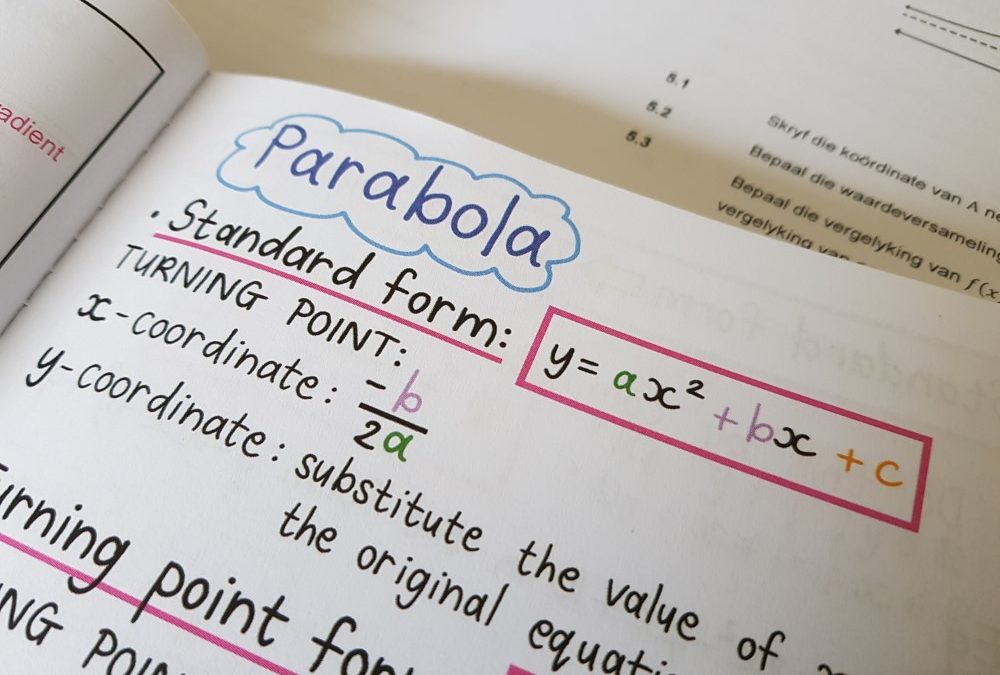 Parabola
. Standard form: y = ax² + bx + c
TURNING POINT:
x-coordinate: -b
2a
y-coordinate: substitute the value of
the original
Turning point
POINT
5.1
5.2
5.3
Skryf die koördinate van A
Bepaal die waardeversameling
Bepaal die vergelyking van f(x
vergelyking van